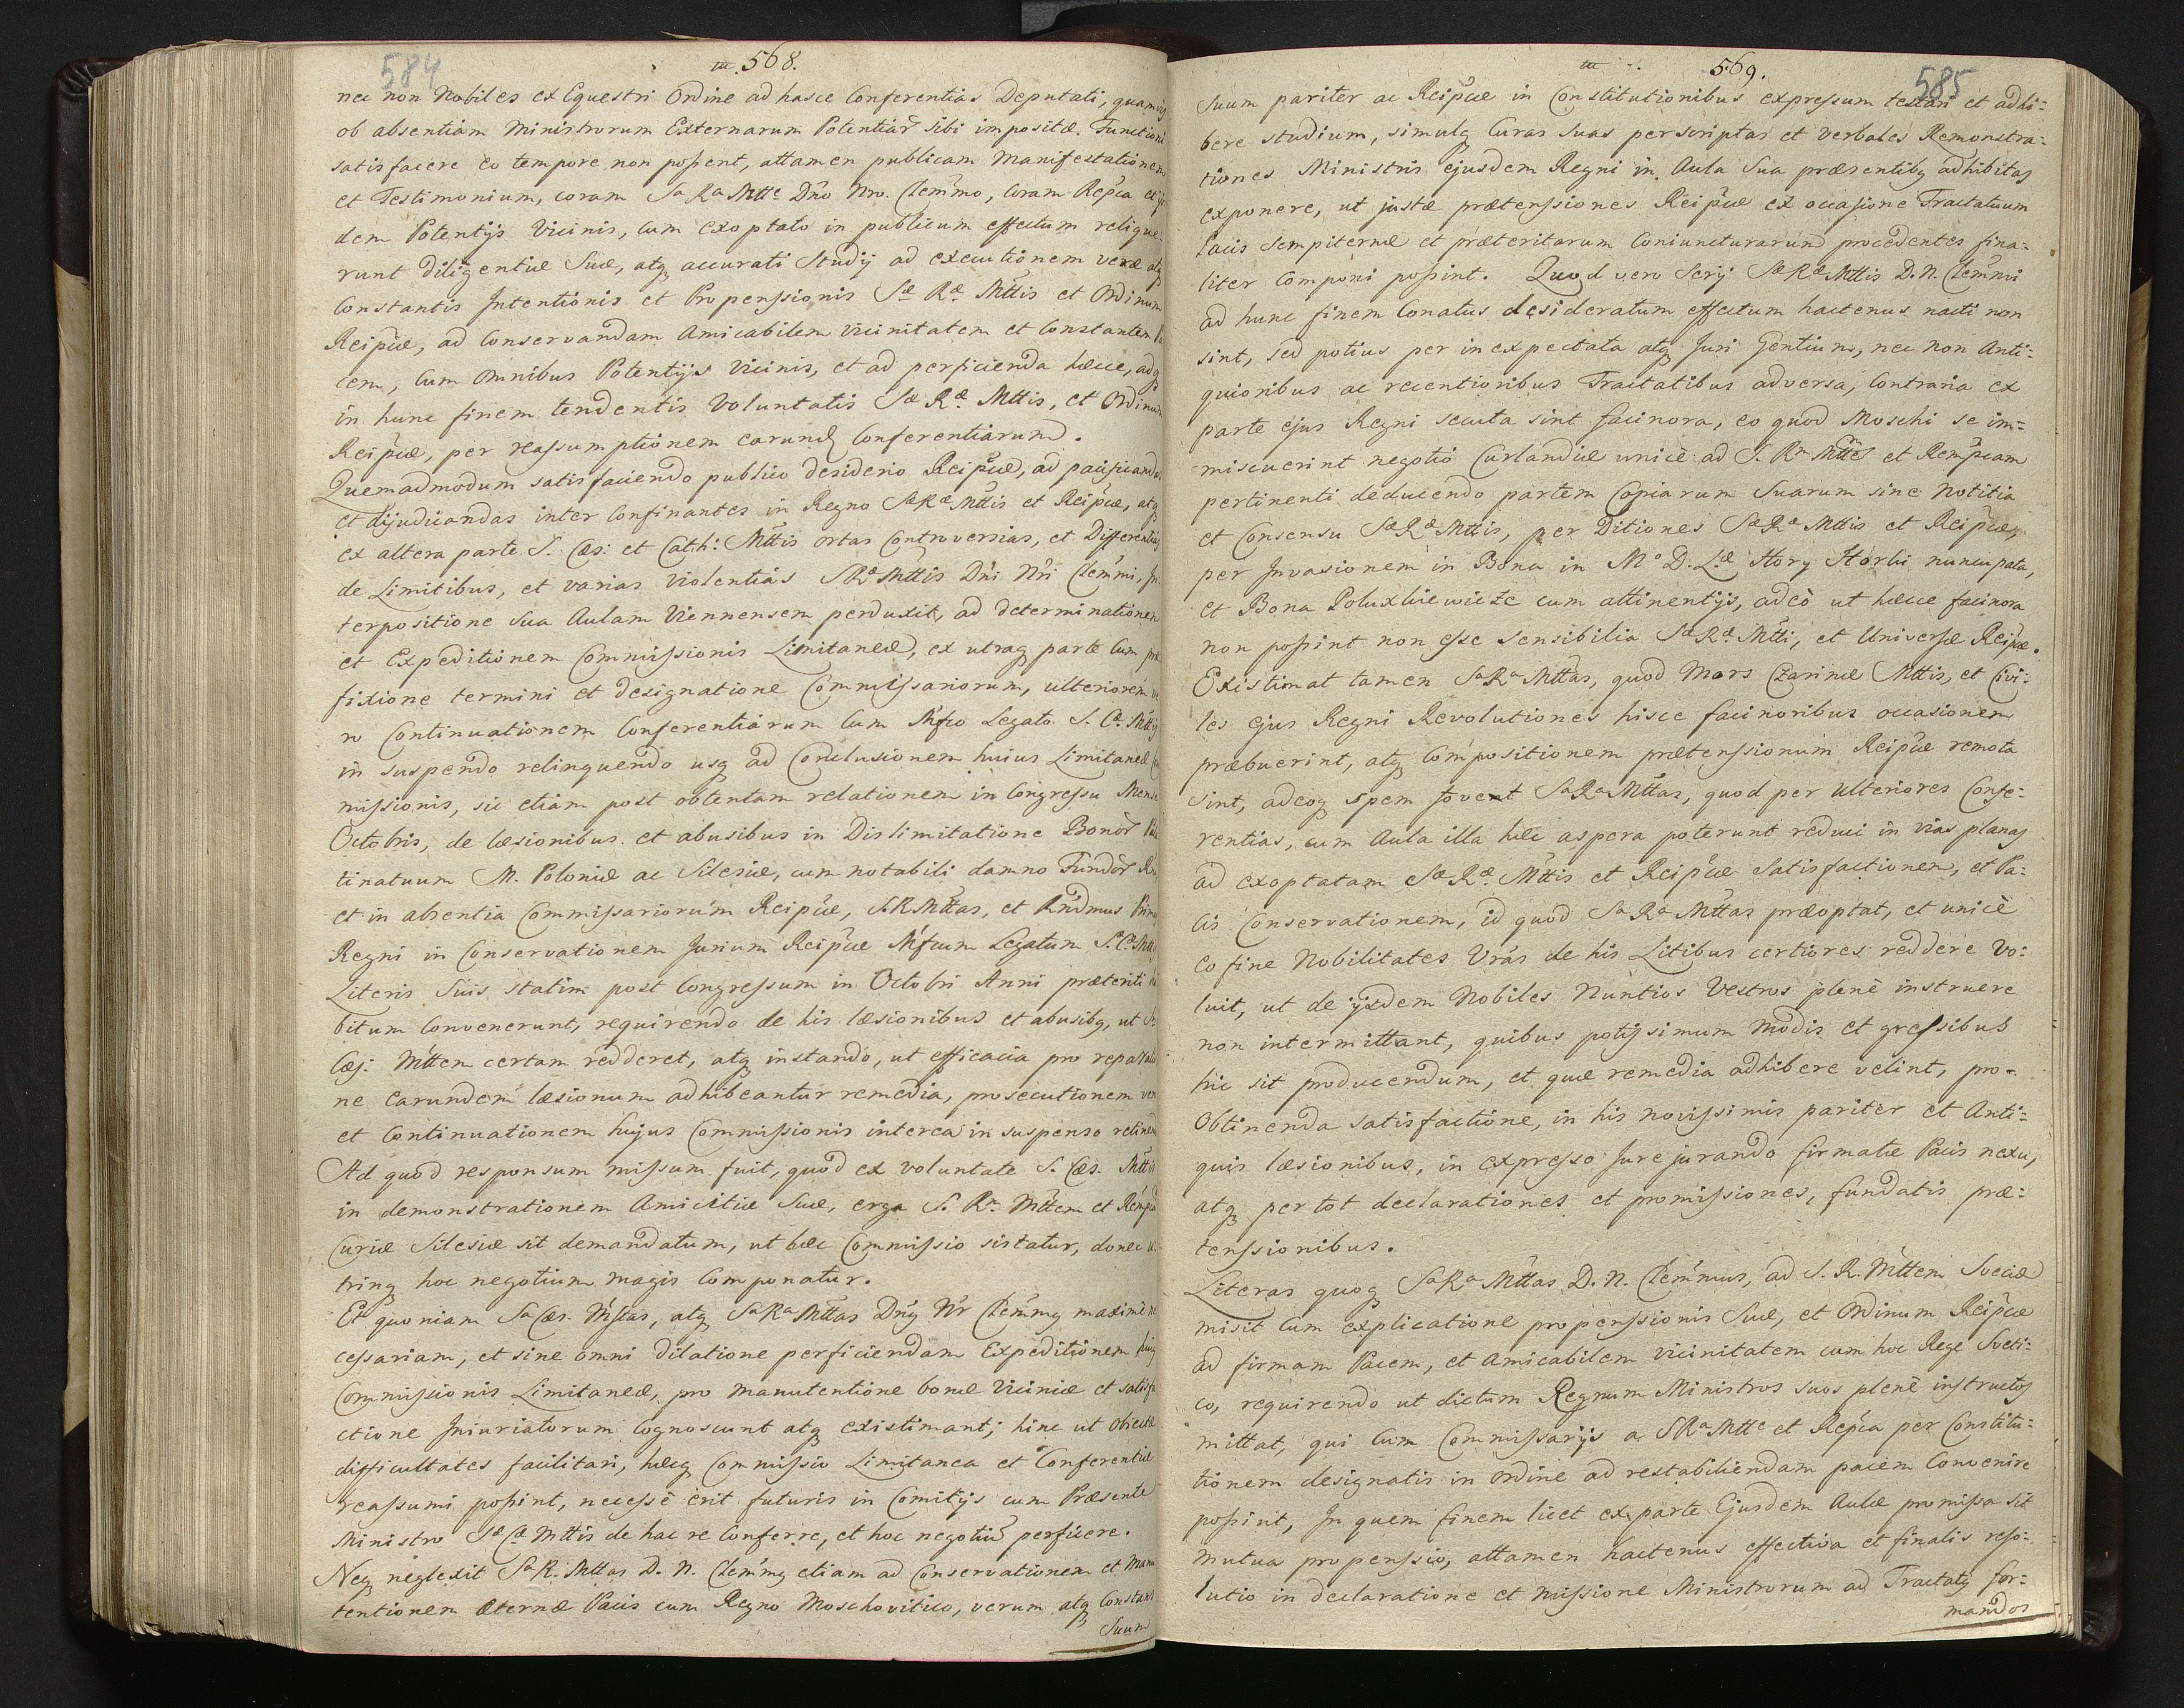 584
568.
nec non Nobiles ex Equestri Ordine ad hasce Conferentias Deputati, quamvis
ob absentiam Ministrorum Externarum Potentiar̃ sibi impositæ Functioni
satisfacere eo tempore non possent, attamen publicam Manifestationem
et Testimonium, coram Sa Ra Mtte Dn̄o Nro. Clem̃mo, coram Repca et
dem Potentÿs Vicinis, cum exoptato in publicum effectum relique-
runt diligentiæ Suæ, atq accurati Studÿ ad executionem veræ atq
Constantis Intentionis et Propenssionis Sæ Ræ Mttis et Ordinum
Reipcæ, ad Conservandam Amicabilem vicinitatem et Constantem Pa
cem, Cum Omnibus Potentÿs Vicinis, et ad perficienda hæcce, adq
in hunc finem tendentis Voluntatis Sæ Ræ Mttis, et Ordinum
Reipcæ, per reassumptionem earund Conferentiarum.
Quemadmodum satisfaciendo publico desiderio Reipcæ, ad pacificandas
et dijudicandas inter Confinantes in Regno SæRæ Mttis et Reipcæ, atq
ex altera parte S. Cæs: et Cath: Mttis ortas Controversias, et Differentias
de Limitibus, et varias violentias SRæ Mttis Dn̄i Nr̄i Clem̃mi, In-
terpositione Sua Aulam Viennensem perduxit, ad determinationem
et Expeditionem Commissionis Limitaneæ, ex utraq parte Cum præ
fixione termini et designatione Commissariorum, ulteriorem ve
ro Continuationem Conferentiarum Cum Mfco Legato S. Cæ Mttis
in suspendo relinquendo usq ad Conclusionem huius Limitaneæ Com
missionis, sic etiam post obtentam relationem in Congressu Mense
Octobris, de læsionibus et abusibus in Dislimitatione Bonor̃ Pala
tinatuum M. Poloniæ ac Silesiæ, cum notabili damno Fundor̃
et in absentia Commissariorum Reipcæ, S.R.Mttas, et Rndmus Prim
Regni in Conservationem Jurium Reipcæ Mfcum Legatum S. Cæ Mttis
Literis Suis statim post Congressum in Octobri Anni præteriti ha
bitum Convenerunt, requirendo de his læsionibus et abusibq, ut S.
Cæs: Mttem certam redderet, atq instando, ut efficacia pro reparatio
ne earundem læsionum adhibeantur remedia, prosecutionem vero
et Continuationem hujus Commissionis interea in suspenso retinend
Ad quod responsum missum fuit, quod ex voluntate S. Cæs. Mttis
in demonstrationem Amicitiæ Suæ, erga S. Ra Mttem et Rempcam
Curiæ Silesiæ sit demandatum, ut hæc Commissio sistatur, donec u-
trinq hoc negotium magis Componatur.
Et quoniam Sa Cæs. Mstas, atq Sa Ra Mttas Dnq Nr Clem̃mq maximè ne
cessariam, et sine omni dilatione perficiendam Expeditionem huiq
Commissionis Limitaneæ, pro Manutentione bonæ Viciniæ et satisfa
ctione Iniuriatorum Cognoscunt atq existimant; hinc ut obiectæ
difficultates facilitari, hæcq Commissio Limitanea et Conferentiæ
reassumi possint, necesse erit futuris in Comitÿs cum Præsente
Ministro Sæ Cæ Mttis de hac re Conferre, et hoc negotiũ perficere.
Neq neglexit Sa R. Mttas D. N. Clem̃mq etiam ad Conservationem et Manu
tentionem Æternæ Pacis cum Regno Moschovitico, verum atq Constans
Suum
569.
585
Suum pariter ac Reipcæ in Constitutionibus expressum testari et adhi-
bere studium, simulq Curas Suas perscriptas et verbales Remonstra-
tiones Ministris ejusdem Regni in Aula Sua præsentibq adhibitas
exponere, ut justæ prætenssiones Reipcæ ex occasione Tractatuum
Pacis Sempiternæ et præteritarum Coniuncturarum procedentes fina-
liter Componi possint. Quod vero Serÿ Sæ Ræ Mttis D. N. Clem̃mi
ad hunc finem Conatus desideratum effectum hactenus nacti non
sint, sed potius per inexpectata atq Juri Gentium, nec non Anti-
quioribus ac recentioribus Tractatibus adversa, Contraria ex
parte ejus Regni secuta sint facinora, eo quod Moschi se im-
miscuerint negotio Curlandiæ unicè ad S. Ra Mttem et Rempcam
pertinenti deducendo partem Copiarum Suarum sine Notitia
et Consensu SæRæ Mttis, per Ditiones SæRæ Mttis et Reipcæ,
per Invasionem in Bona in Mo D. Læ Hory Horki nuncupata,
et Bona Poluxhiewicze cum attinentÿs, adeò ut hæcce facinora
non possint non esse Sensibilia SæRæ Mtti, et Universæ Reipcæ.
Existimat tamen SaRa Mttas, quòd Mors Czarinæ Mttis, et Civi-
les ejus Regni Revolutiones hisce facinoribus occasionem
præbuerint, atq Compositionem prætenssionum Reipcæ remota
sint, adeoq spem fovent SaRa Mttas, quod per Ulteriores Confe-
rentias, cum Aula illa hæc aspera poterunt reduci in vias planas
ad exoptatam Sæ Ræ Mttis et Reipcæ Satisfactionem, et Pa-
cis Conservationem, id quod Sa Ra Mttas præoptat, et unicè
eo fine Nobilitates Vrás de his Litibus certiores reddere vo-
luit, ut de ÿsdem Nobiles Nuntios Vestros plenè instruere
non intermittant, quibus potissimum Modis et gressibus
hic sit producendum, et quæ remedia adhibere velint, pro
Obtinenda satisfactione, in his novissimis pariter et Anti-
quis læsionibus, in expresso Jure jurando firmatæ Pacis nexu,
atq per tot declarationes et promissiones, fundatis præ-
tenssionibus.
Literas quoq SaRa Mttas D. N. Clem̃mus, ad S. R. Mttem Sveciæ
misit Cum explicatione propenssionis Suæ, et Ordinum Reipcæ
ad firmam Pacem, et Amicabilem Vicinitatem cum hoc Rege Sveti-
co, requirendo ut dictum Regnum Ministros suos plenè instructos
mittat, qui Cum Commissarÿs a SRa Mtte et Repca per Constitu-
tionem designatis in Ordine ad restabiliendam pacem Convenire
possint, In quem finem licet ex parte Ejusdem Aulæ promissa sit
mutua propenssio, attamen hactenus effectiva et finalis reso-
lutio in declaratione et missione Ministrorum ad Tractatq for-
mandos